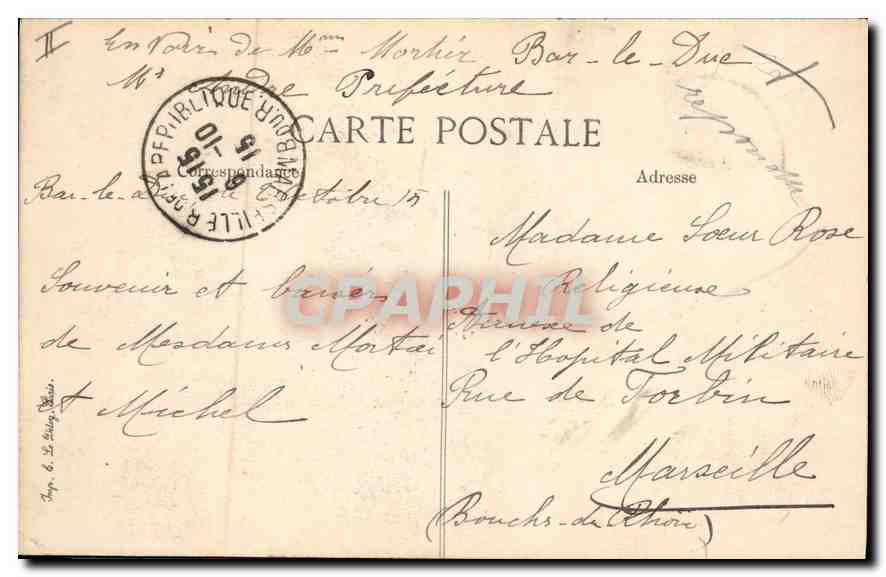 II
Envoi de Mme Bar-le-Duc
Préfecture
CARTE POSTALE
Correspondance
Adresse
MARSEILLE RÉPUBLIQUE B. DU R.
15 15
6 -10
15
répondu
Bar-le- Octobre 15
Souvenir et baisers
de Mesdames
et Michel
Madame Sœur Rose
Religieuse
Annexe de
l'Hopital Militaire
Rue de Forbin
Marseille
(Bouches-du Rhône)
CPAPHIL
Imp. E. Le Deley, Paris.